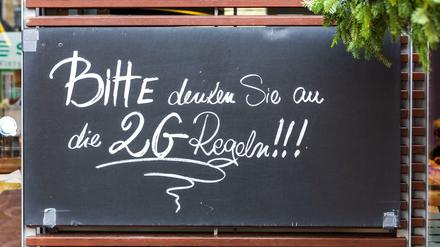 BittE denken Sie an
die 2G-Regeln!!!